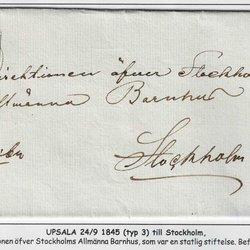 irektionen öfver Stockhol
llmänna Barnhus
Stockholm
UPSALA 24/9 1845 (typ 3) till Stockholm,
onen öfver Stockholms Allmänna Barnhus, som var en statlig stiftelse. Bef